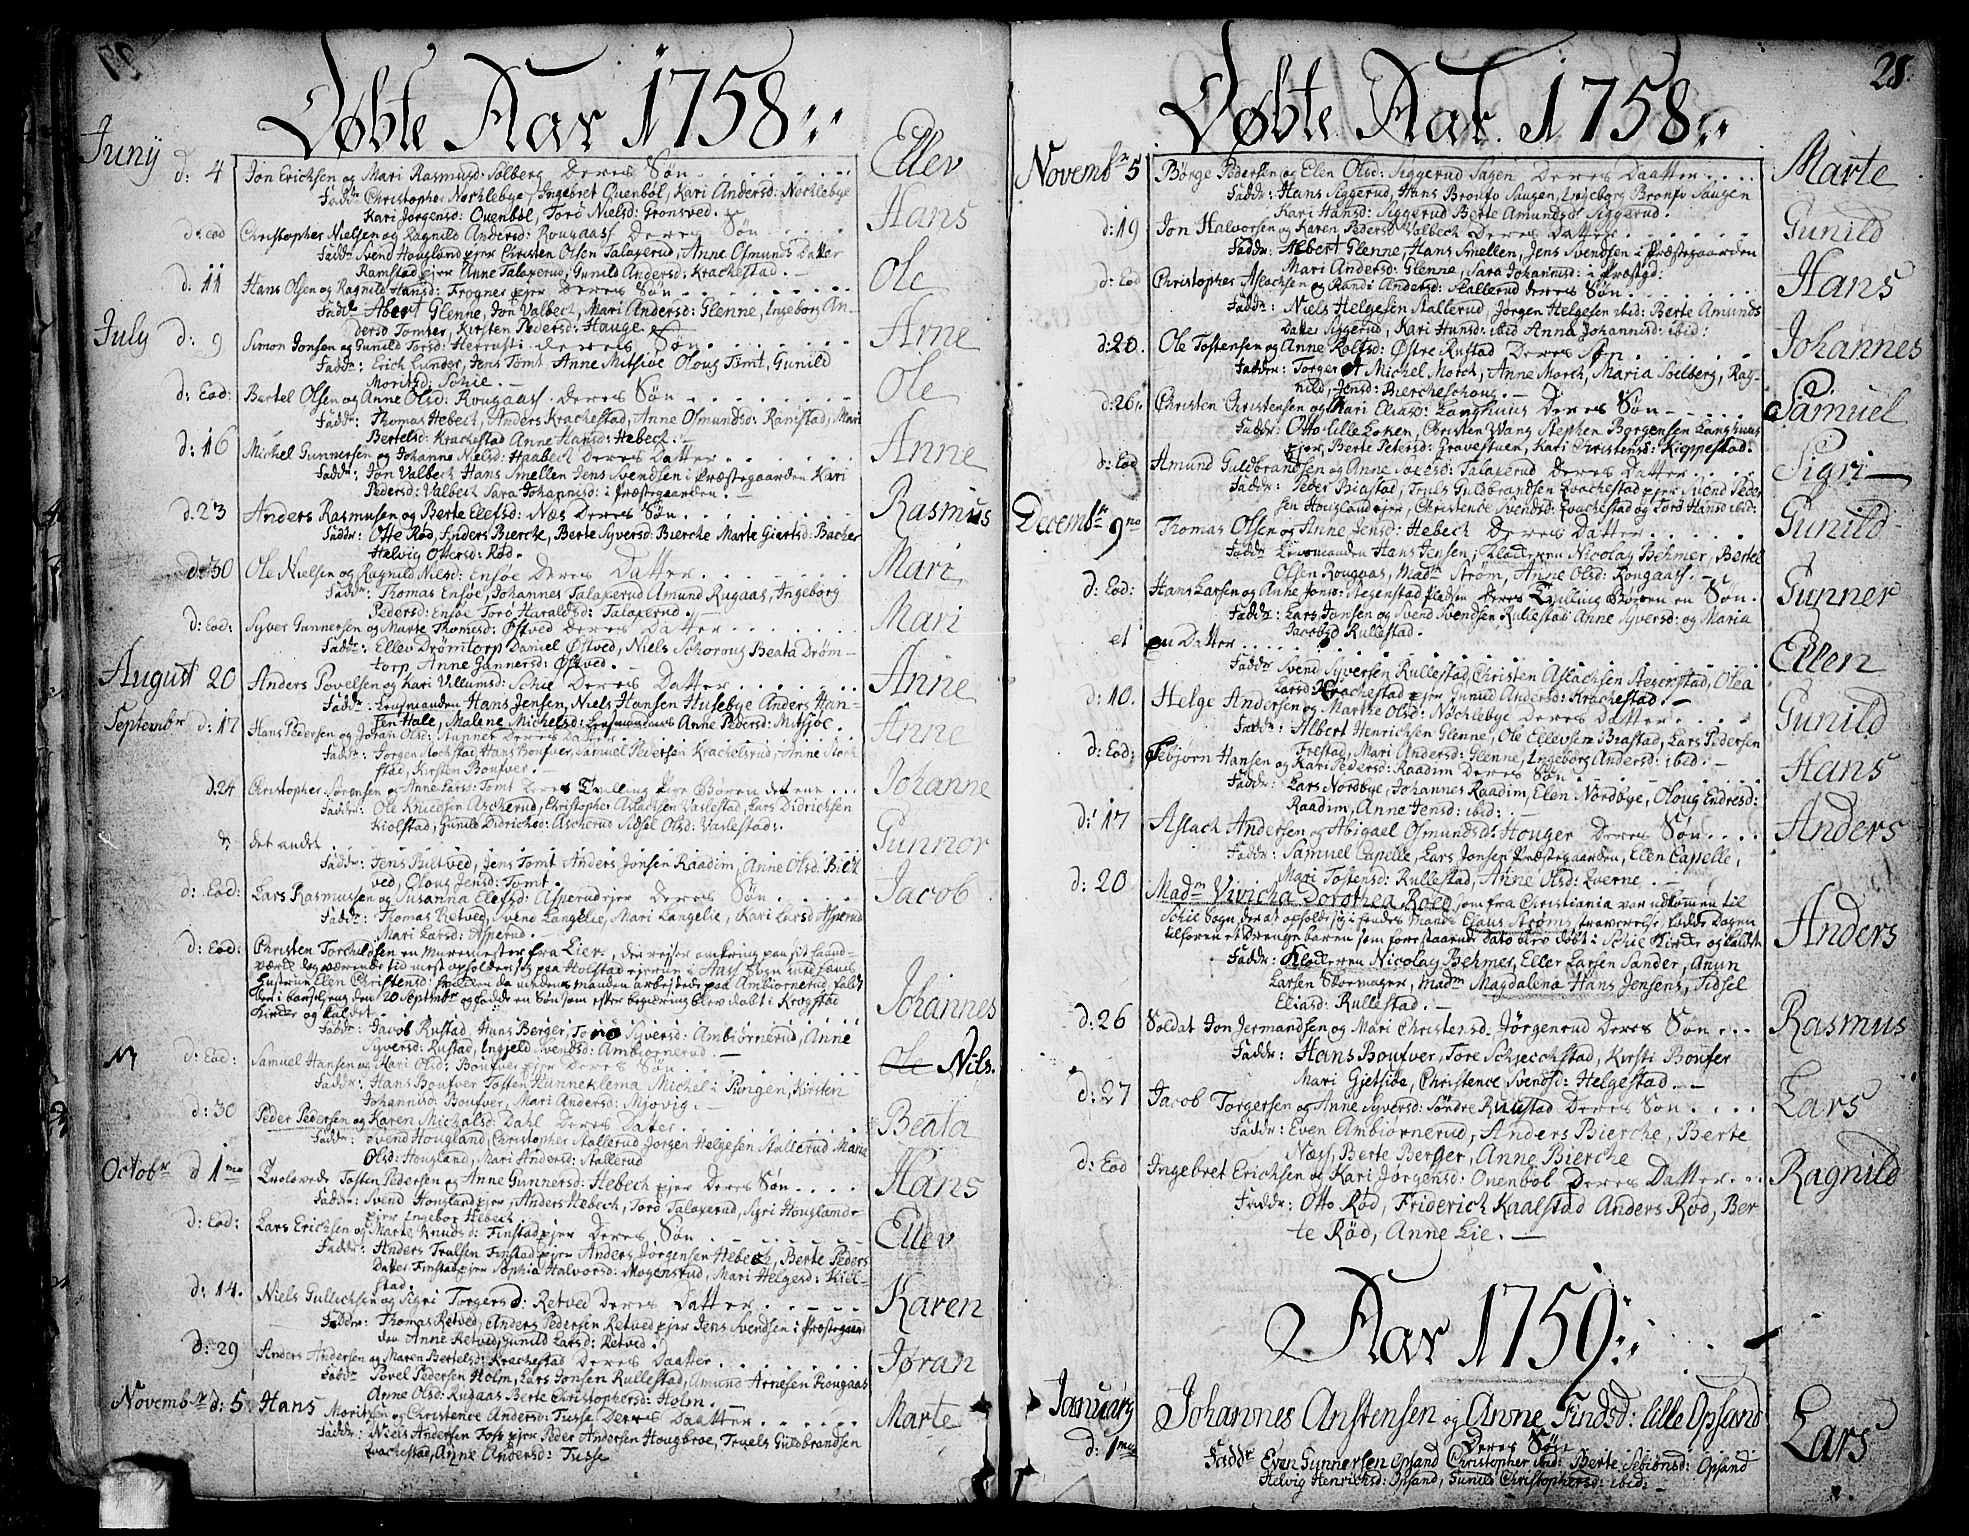 Døbte Aar 1758
Juny d: 4 Jon Ericksen og Mari Rasmusd: Solberg Deres Søn Ellev
Faddr Christopher Nochlebye, Ingebret Ovenbøl, Kari Andersd: Nochlebye
Kari Jørgensd: Ovenbøl, Toro Nielsd: Gronsved.
d: eod Christopher Nielsen og Ragnild Andersd: Rougaass Deres Søn Hans
Faddr Svend Hougland ejer Christen Olsen Talaxerud, Anne Osmunds Datter
Ramstad ejer Anne Talaxerud, Gunild Andersd: Krachestad.
d. 11 Hans Olsen og Ragnild Hansd: Frogner ejer Deres Søn Ole
Faddr Albert Glenne, Jon Valbech, Mari Andersd: Glenne, Ingeborg An-
dersd Tomter, Kirsten Pedersd: Hauge
July d: 9 Simon Jonsen og Gunild Torsd: Deres Søn Arne
Faddr: Erich Lunder, Jens Tomt Anne Mitsiøe Oloug Tomt, Gunild
Moritsd: Schie.
d: Eod: Bartel Olsen og Anne Olsd: Rougaass: Deres Søn Ole
Faddr: Thomas Hebech, Anders Krachestad, Anne Osmundsd: Ramstad, Mari
Bertelsd: Krachestad Anne Hansd: Hebech.
d: 16 Michel Gunnersen og Johanne Nielsd: Haabech Deres Datter Anne
Faddr: Jon Valbech Hans Smellen Jens Svendsen i Præstegaarden Kari
Pedersd: Valbech Sara Johannisd: i Præstegaarden.
d. 23 Anders Rasmusen og Berte Elefsd: Næs Deres Søn Rasmus
Faddr: Otte Rød, Anders Bierche, Berte Syversd: Bierche Marte Giertsd: Bacher
Helvig Ottersd: Rød.
d: 30 Ole Nielsen og Ragnild Nilsd: Ensøe Deres Datter Mari
Faddr: Thomas Ensøe, Johannes Talaxerud Amund Rugaas, Ingeborg
Pedersd: Ensøe Toro Haraldsd: Talaxerud.
d: Eod: Syver Gunnersen og Marte Thomesd: Østved Deres Datter Mari
Faddr: Ellev Drømtorp Daniel Østved, Niels Schorous Beata Drøm-
torp Anne Gunnersd: Østved.
August 20 Anders Povelsen og Kari Villumsd: Schie Deres Datter Anne
Faddr: Lensmanden Hans Jensen, Niels Hansen Husebye Anders Han-
sen Hale, Malene Michelsd: Anne Pedersd: Mitsjøe.
Septembr d: 17 Hans Pedersen og Joran Olsd: Deres Datter Anne
Faddr: Jorgen Rochstad, Hans Boufver, Samuel Pedersen Krachelsrud, Anne Roch
stad, Kirsten Boufver.
d. 24 Christopher Sørensen og Anne Larsd: Tomt Deres Tvilling Pige Børen det ene Johanne
Faddr: Ole Knudsen Ascherud, Christopher Aslachsen Vaslestad, Lars Didrichsen
Kiolstad, Gunild Didrichsd: Ascherud Sidsel Olsd: Vaslestad.
& det andet Gunnor
Faddr: Jens Bieltved, Jens Tomt Anders Jonsen Raadim, Anne Olsd. Bielt
ved, Oloug Jensd: Tomt.
d: Eod: Lars Rasmussen og Susanna Elefsd: Asperud ejer Deres Søn Jacob
Faddr: Thomas Retved, Svend Langelie, Mari Langelie, Kari Larsd Asperud
Mari Larsd: Asperud.
d: Eod: Christen Torchildsen en Muremester fra Lier, der rejser omkring paa sit haand-
værk dog værende tid mest opholder sig paa Holstad ejerum i Aass Sogn
Hustrue Elen Christensd: da manden arbejdede paa Ambiornerud, faldt
Der i barselseng den 20 Septembr og fødde en Søn som efter begiæring blev døbt i Krogstad
Kirche og kaldet Johannes
Faddr: Jacob Rustad, Hans Berger, Toro Syversd: Ambiørnerud, Anne
Syversd: Rustad, Ingjeld Svendsd: Ambiornerud.
d: Eod: Samuel Hansen og Kari Olsd: Boufver ejer Deres Søn Ole Nils.
Faddr: Hans Boufver Tosten Hunneklema Michel i Pungen, Kirsten
Johannisd: Boufver, Mari Andersd: Mjovig.
d: 30 Peder Pedersen og Karen Michalsd: Dahl Deres Dater Beata
Faddr: Svend Hougland, Christopher Stallerud Jørgen Helgesen Stallerud Maria
Olsd: Hougland, Mari Andersd: Stallerud
Octobr d 1mo Trolovede Tosten Pedersen og Anne Gunnersd: Hebech ejer Deres Søn Hans
Faddr: Svend Hougland ejer, Anders Hebech, Tord Talaxerud, Sigri Houglande
ejer Ingebor Hebech
d: Eod: Lars Erichsen og Marte Knudsd: Finstad ejer Deres Søn Ellev
Faddr: Anders Trulsen Finstad ejer Anders Jørgensen Hebech, Berte Peders
Datter Finstad ejer Sophia Halvorsd: Mogenstrud, Mari Helgesd: Kiel-
stad.
d: 14. Niels Gullichsen og Sigri Torgersd: Retved Deres Datter Karen
Faddr: Thomas Retved, Anders Pedersen Retved ejer Jens Svendsen i Præstegaar
den Anne Retved, Gunild Larsd: Retved.
d: 29 Anders Andersen og Maren Bertelsd: Krachestad Deres Daatter Jøran
Faddr Povel Pedersen Holm, Lars Jonsen Rullestad, Amund Arnesen Rougaas
Anne Olsd: Rugaas Berte Christophersd: Holm.
Novembr d: 5 Hans Moritsen og Christence Andersd: Tusse Deres Daatter Marte
Faddr: Niels Andersen Foss ejer Peder Andersen Hougbroe, Truels Guldbrandsen
Krachestad, Anne Andersd: Tusse
28.
Døbte Aar 1758
Novembr 5 Børge Pedersen og Elen Olsd: Siggerud Sagen Deres Daatter Marte
Faddr: Hans Siggerud, Hans Bronfo Saugen, Ingeborg Bronfo Saugen
Kari Hansd: Siggerud Berte Amundsd: Siggerud.
d: 19 Jon Halvorsen og Karen Pedersd Valbech Deres Datter Gunild
Faddr: Albert Glenne, Hans Smellen, Jens Svendsen i Præstegaarden
Mari Andersd: Glenne, Sara Johannisd: i Præstgd:
d: Eod Christopher Aslachsen og Randi Andersd: Stallerud Deres Søn Hans
Faddr: Niels Helgesen Stallerud, Jørgen Helgesen ibid: Berte Amunds
Datter Siggerud, Kari Hansd: ibid Anna Johannisd: ibid:
d: 20. Ole Tostensen og Anne Rolfsd: Østre Rustad Deres Søn Johannes
Faddr: Torger Michel Morch, Anne Morch, Maria Solberg, Rag-
nild Jensd: Biercheschoug.
d: 26. Christen Christensen og Mari Eliasd: Langhuus Deres Søn Samuel
Faddr: Otto Lille Loken, Christen Wang Stephen Borgensen Langhuus
ejer, Berte Petersd: Gravestuen, Kari Christensd: Kieppestad.
d: Eod Amund Guldbrandsen og Anne Talaxerud Deres Datter Sigri
Faddr: Peder Biastad, Truls Guldbrandsen Krachestad ejer, Svend Peder
sen Hougland ejer, Christence Svendsd: Krachestad og Toro Hansd ibid:
Decembr 9no Thomas Olsen og Anne Jensd: Hebech Deres Datter Gunild
Faddr Lensmanden Hans Jensen, Klocheren Nicolay Behmer, Bertel
Olsen Rougaas, Madm Strøm, Anne Olsd: Rougaass.
d: Eod: Hans Larsen og Anne Jonsd: Stegenstad pladsen Deres Tvilling Børen en Søn. Gunner
Faddr: Lars Jonsen og Svend Svendsen Rullestad Anne Syversd: og Maria
Jacobsd Rullestad.
et en Datter Ellen
Faddr Svend Syversen Rullestad, Christen Aslachsen Stegenstad, Olea
Larsd: Krachestad ejer Gunild Andersd: Krachestad.
d: 10. Helge Andersen og Marthe Olsd: Nochlebye Deres Datter Gunild
Faddr: Albert Henrichsen Glenne, Ole Ellevsen Brastad, Lars Pedersen
Frestad, Mari Andersd: Glenne, Ingeborg Andersd: ibid.
d: Eod: Esebjørn Hansen og Kari Pedersd: Raadim Deres Søn Hans
Faddr: Lars Nordbye, Johannes Raadim, Elen Nordbye, Oloug Endresd:
Raadim, Anne Jensd: ibid:
d: 17 Aslach Andersen og Abigael Osmundsd: Houger Deres Søn Anders
Faddr: Samuel Capelle, Lars Jonsen Præstegaarden, Elen Capelle,
Mari Tostensd: Rullestad, Anne Olsd: Kverne.
d: 20 Madm Vivicha Dorothea Rolø som fra Christiania var udkomen til
Schie Sogn, der at opholde sig i hendes Mands Claus Strøms fraværelse fødde Dagen
tilforen et Drenge baren som forestaaende Dato blev døbt i Schie Kirche og kaldet Anders
Faddr: Klocheren Nicolay Behmer, Eller Larsen Sander, Anun
Larsen Skoemager, Madm Magdalena Hans Jensens, Sidsel
Eliasd: Rullestad.
d: 26 Soldat Jon Jermandsen og Mari Christensd: Jørgenrud Deres Søn Rasmus
Faddr: Hans Boufver, Tore Schiecchstad, Kirsti Boufer
Mari Gjetsiøe, Christence Svendsd: Helgestad.
d: 27 Jacob Torgersen og Anne Syversd: Søndre Ruustad Deres Søn Lars
Faddr: Even Ambiornerud, Anders Bierche, Berte
Næss, Berte Berger, Anne Bierche
d: Eod Ingebret Erichsen og Kari Jørgensd: Ovenbøl Deres Datter Ragnild
Faddr: Otto Rød, Friderich Kaalstad Anders Rød, Ber-
te Rød, Anne Lie.
Aar 1759
January d: 1mo Johannes Anstensen og Anne Findsd: lille Opsand Lars
Deres Søn
Faddr Even Gunnersen Opsand Christopher ibid: Berte Sebiønsd: Opsand
Helvig Henrichsd: Opsand, Gunild Christophersd: ibid: